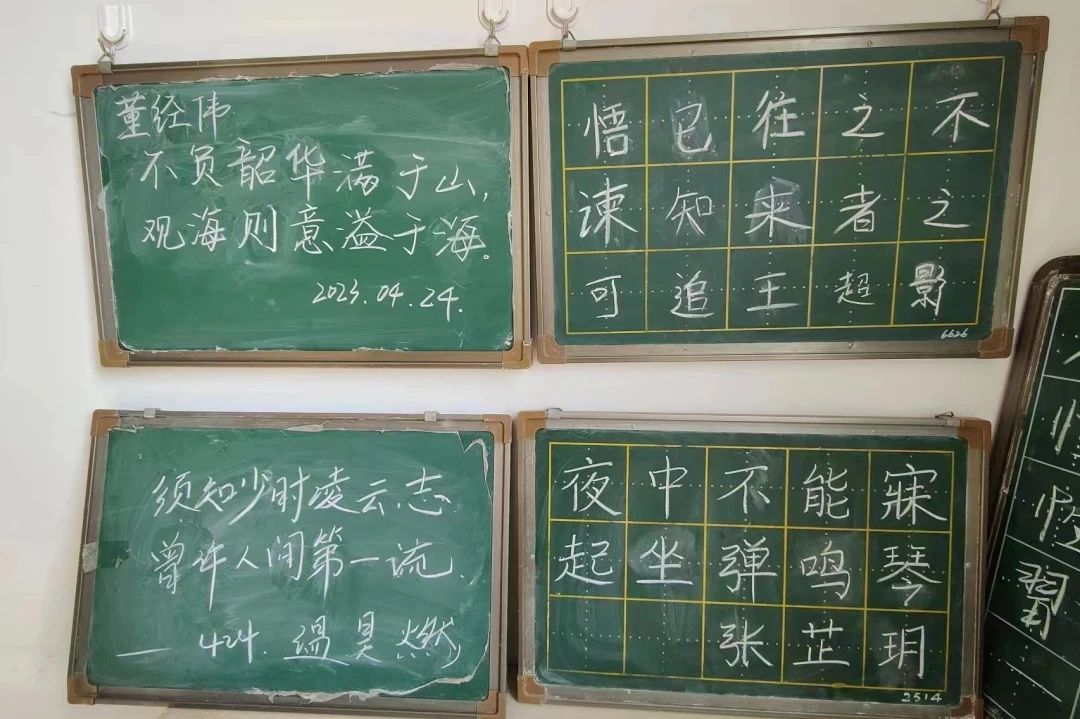 董经伟
不负韶华满于山,
观海则意溢于海。
2023.04.24.
悟已往之不
谏知来者之
可追王超影
6626
须知少时凌云志
曾许人间第一流.
— 424. 温具燃
夜中不能寐
起坐弹鸣琴
张芷玥
2514